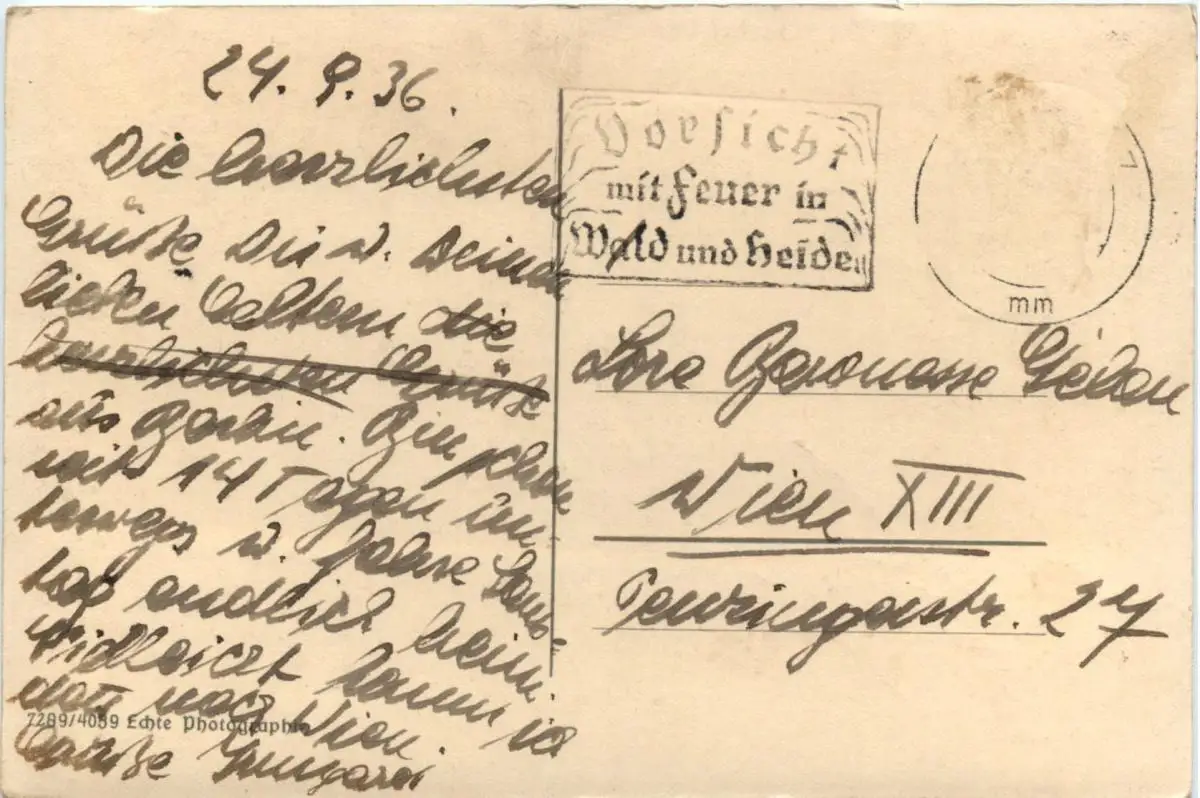 24. 9. 36.
Die herzlichsten
Grüße Dir u. Deinen
lieben Eltern die
herzlichsten Grüße
aus Berlin. Bin schon
seit 14 Tagen un-
terwegs u. fahre Sams-
tag endlich heim.
Vielleicht komm ich
dann nach Wien.
Grüße
7289/4089 Echte Photographie
Vorsicht
mit Feuer in
Wald und Heide
mm
Lore Baronesse
Wien XIII
Penzingerstr. 27